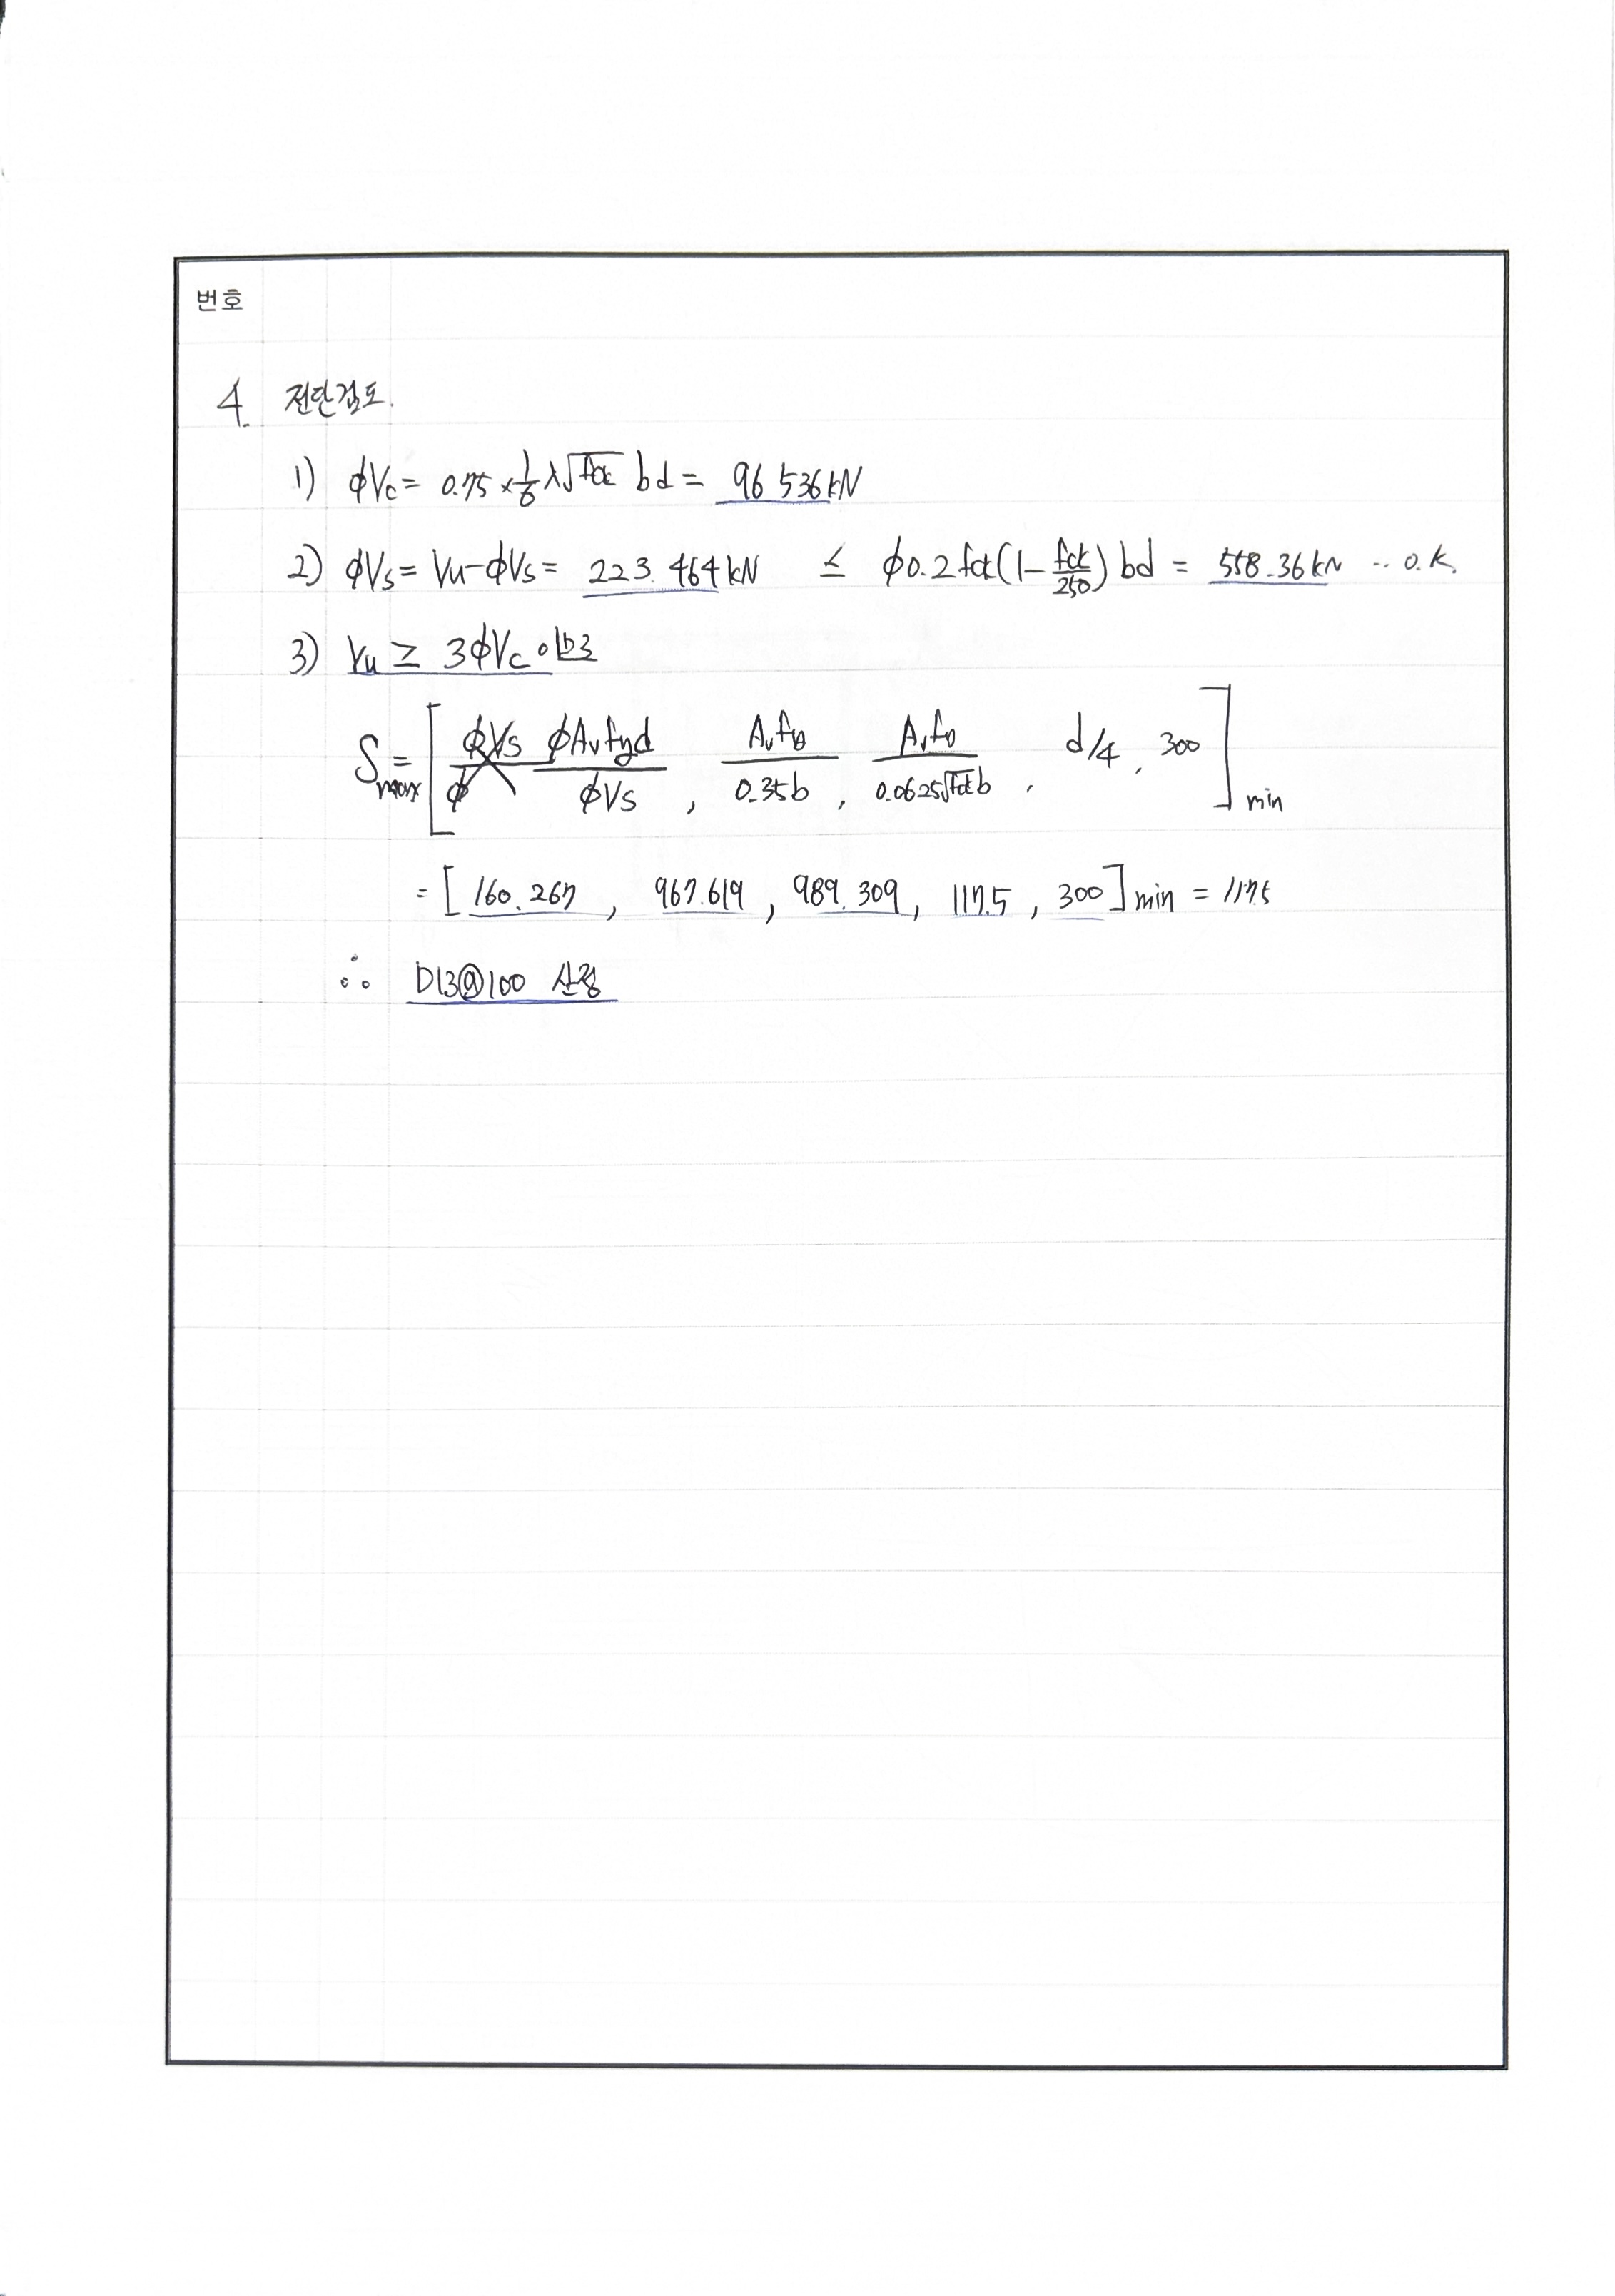 번호
4. 전단검토.
1) ϕVc = 0.75 × 1/6 λ√fck bd = 96.536kN
2) ϕVs = Vu-ϕVs = 223.464kN ≤ ϕ0.2fck(1-fck/250)bd = 558.36kN ‥ O.K.
3) Vu ≥ 3ϕVc 이므로
Smax = [ ϕAvfyd/ϕVs , Avfy/0.35b , Avfy/0.0625√fck b , d/4 , 300 ]min
= [ 160.267 , 967.619 , 989.309 , 117.5 , 300 ]min = 117.5
∴ D13@100 산정